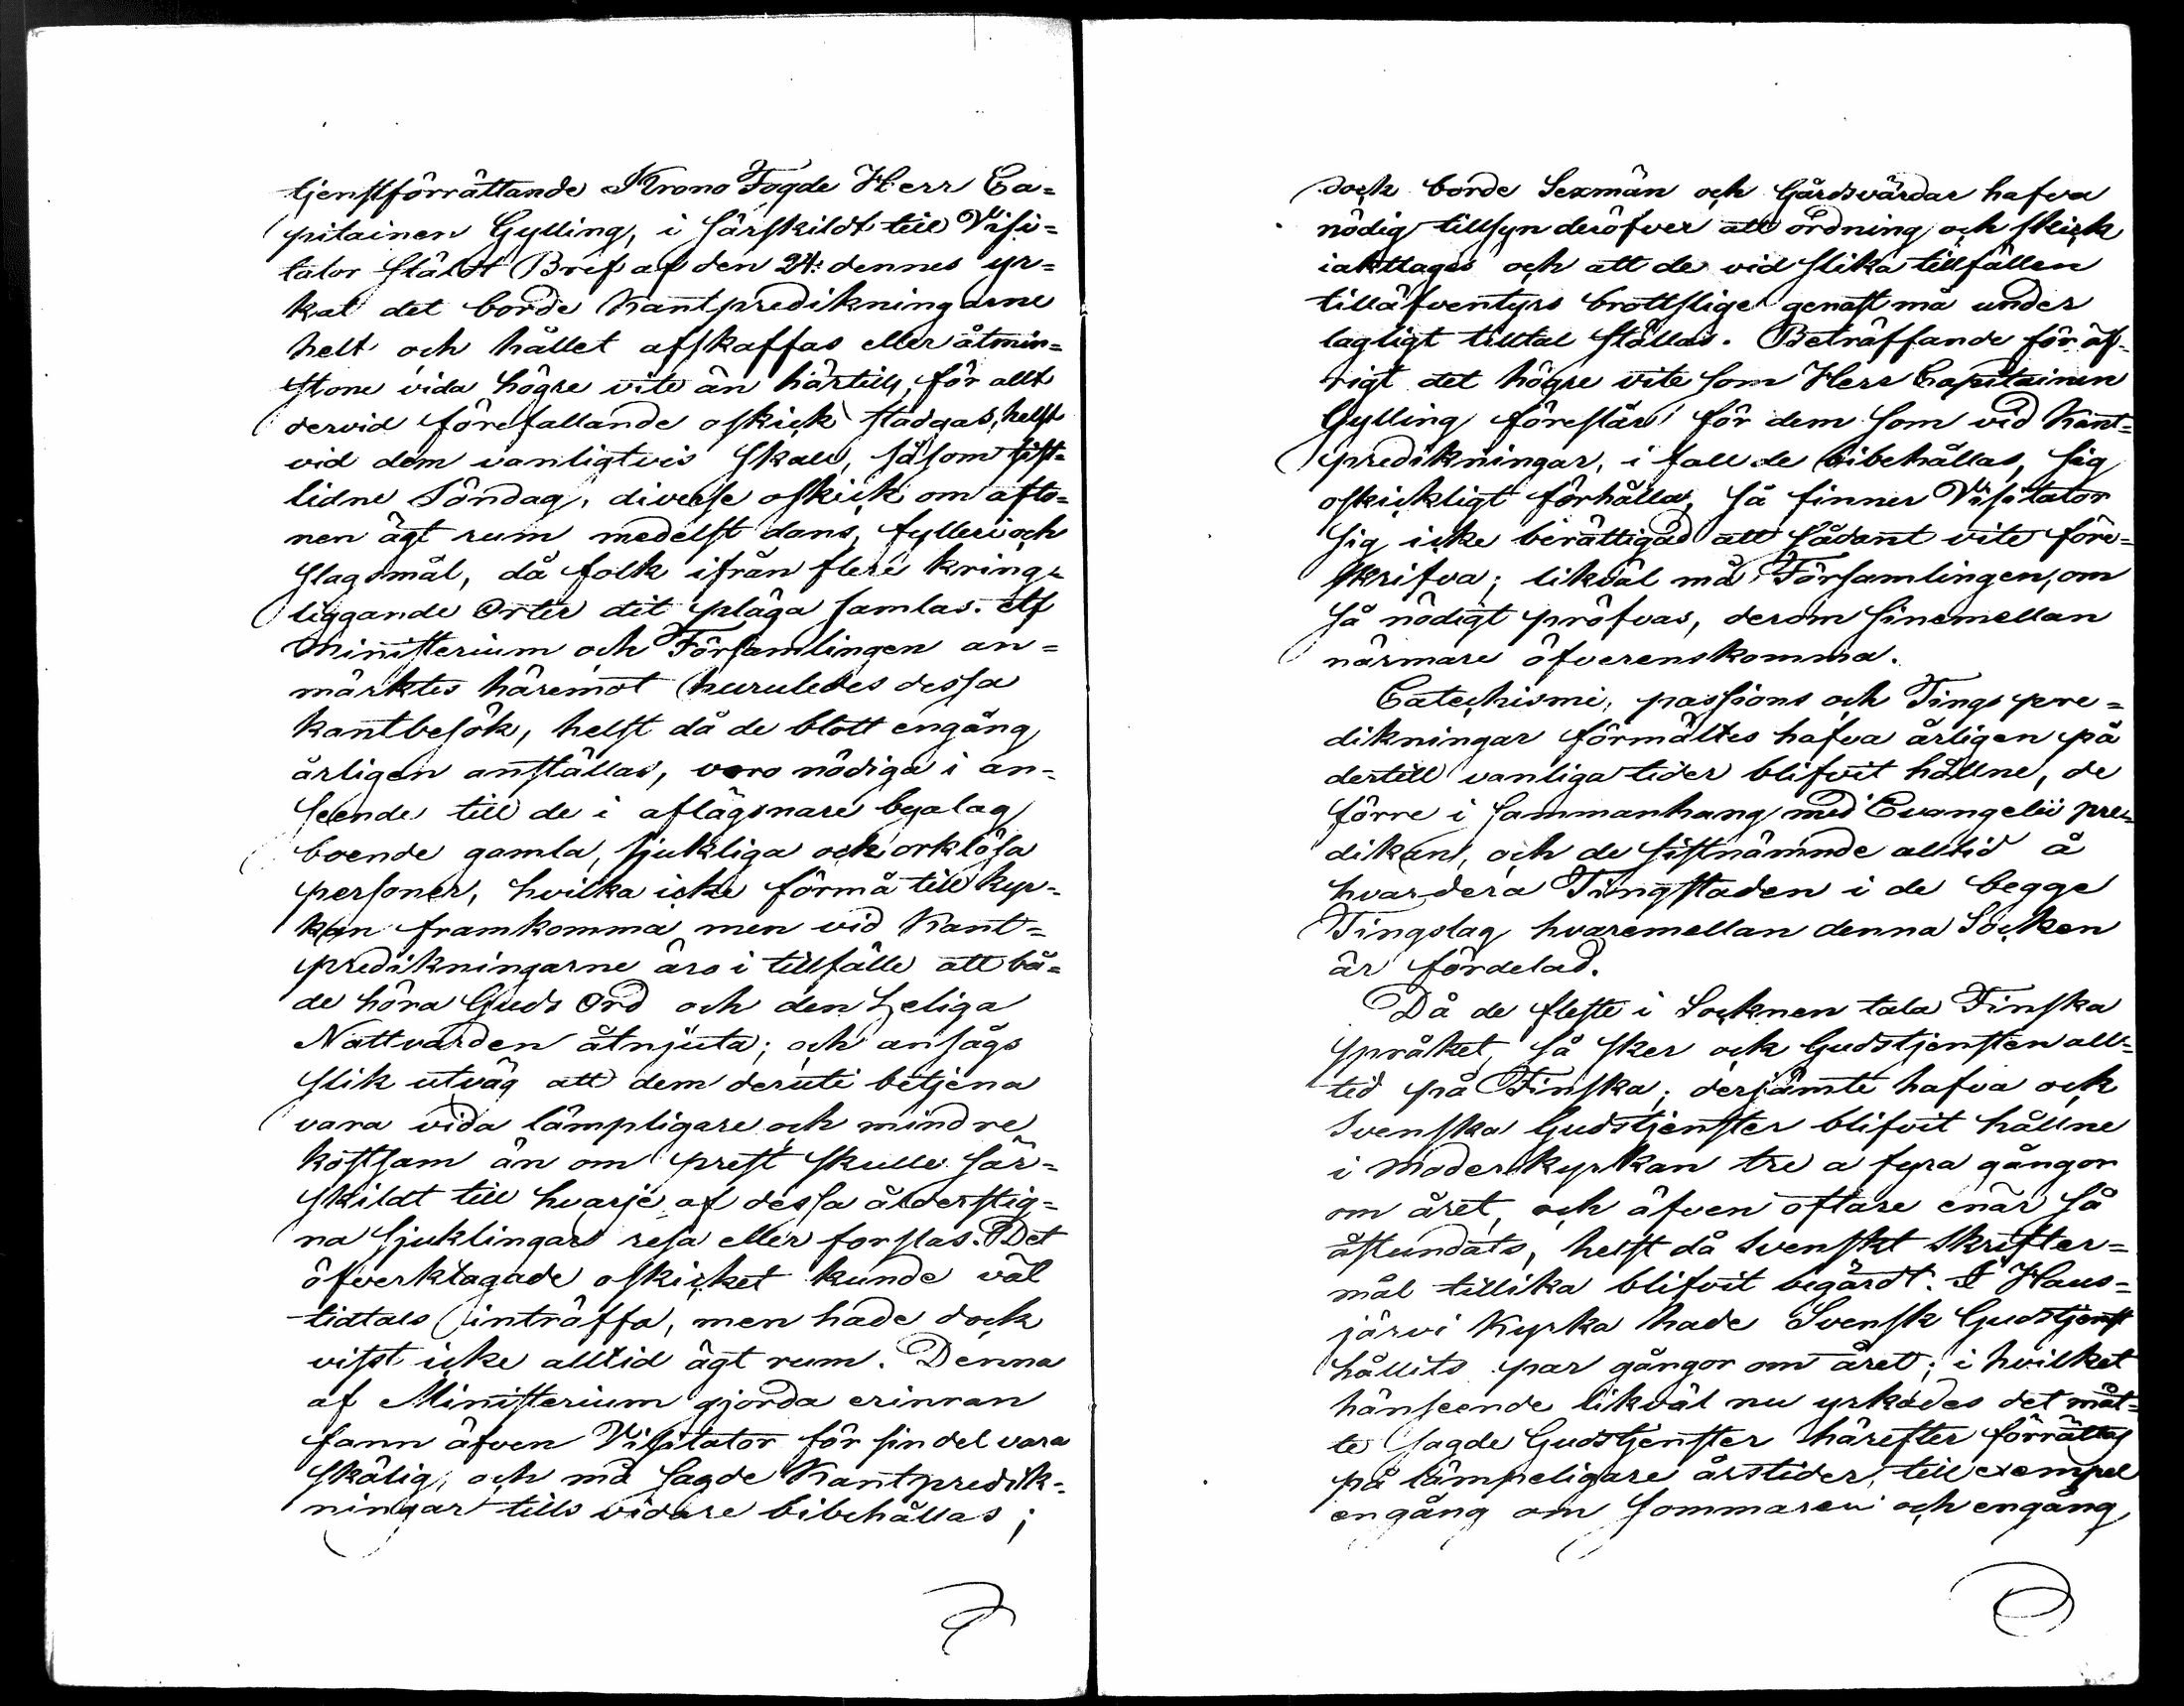 tjenstförrättande Krono Fogde Herr Ca=
pitainen Gylling, i särskildt till Visi=
tator stäldt Bref af den 24: dennes yr=
kat det borde Kantpredikningarne
helt och hållet afskaffas eller åtmin=
stone vida högre vite än härtills, för allt
dervid förefallande oskick stadgas, helst
vid dem vanligtvis skall, såsom sist=
lidne Söndag, diverse oskick om afto=
nen ägt rum medelst dans, fylleri och
slagsmål, då folk ifrån flere kring=
liggande Orter dit pläga samlas. Af
Ministerium och Församlingen an=
märktes häremot huruledes dessa
kantbesök, helst då de blott engång
årligen anställas, voro nödiga i an=
seende till de i aflägsnare byalag
boende gamla, sjukliga och orklösa
personer, hvilka icke förmå till kyr=
kan framkomma men vid Kant=
predikningarne äro i tillfälle att bå=
de höra Guds Ord och den heliga
Nattvarden åtnjuta; och ansågs
slik utväg att dem deruti betjena
vara vida lämpligare och mindre
kostsam än om prest skulle sär=
skildt till hvarje af dessa ålderstig=
na sjuklingar resa eller forslas. Det
öfverklagade oskicket kunde väl
tidtals inträffa, men hade dock
visst icke alltid ägt rum. Denna
af Ministerium gjorda erinran
fann äfven Visitator för sin del vara
skälig, och må sagde Kantpredik=
ningar tills vidare bibehållas;
dock borde Sexmän och Gårdsvärdar hafva
nödig tillsyn deröfver att ordning och skick
iakttages och att de vid slika tillfällen
tilläfventyrs brottslige genast må under
lagligt tilltal ställas. Beträffande för öf=
rigt det högre vite som Herr Capitainen
Gylling föreslår för dem som vid Kant=
predikningar, i fall de bibehållas, sig
oskickligt förhålla, så finner Visitator
sig icke berättigad att sådant vite före=
skrifva; likväl må Församlingen, om
så nödigt pröfvas, derom sinemellan
närmare öfverenskomma.
Catechismi, passions och Tings pre=
dikningar förmältes hafva årligen på
dertill vanliga tider blifvit hållne, de
förre i sammanhang med Evangelii pre=
dikan, och de sistnämnde alltid å
hvardera Tingstaden i de begge
Tingslag hvaremellan denna Socken
är fördelad.
Då de fleste i Socknen tala Finska
språket, så sker ock Gudstjensten all=
tid på Finska; derjämte hafva ock
Svenska Gudstjenster blifvit hållne
i Moderkyrkan tre a fyra gångor
om året, och äfven oftare enär så
åstundats, helst då Svenskt Skrifter=
mål tillika blifvit begärdt. I Haus=
järvi Kyrka hade Svensk Gudstjenst
hållits par gångor om året; i hvilket
hänseende likväl nu yrkades det måt=
te sagde Gudstjenster härefter förrättas
på lämpeligare årstider, till exempel
engång om Sommaren och engång